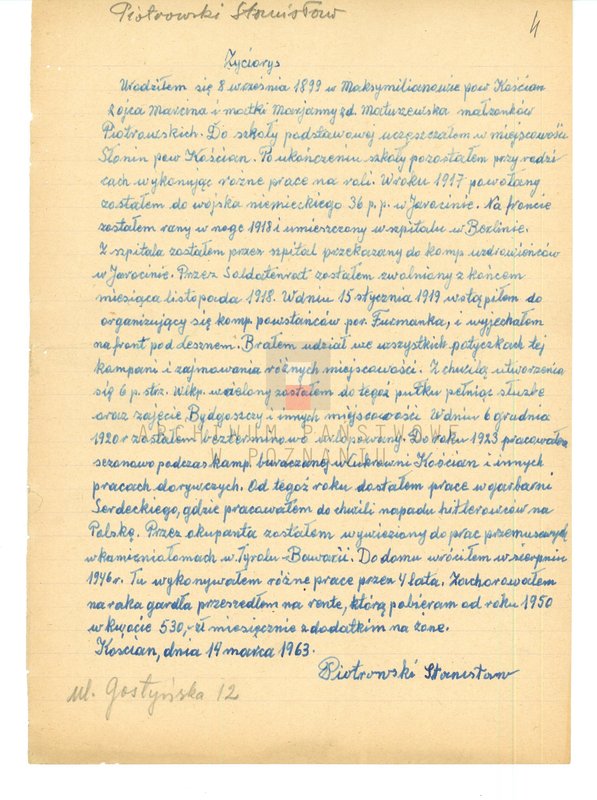 Piotrowski Stanisław
4
Życiorys
Urodziłem się 8 września 1899 w Maksymilianowie pow Kościan
z ojca Marcina i matki Marjanny zd. Matuszewska małżonków
Piotrowskich. Do szkoły podstawowej uczęszczałem w miejscowości
Słonin pow Kościan. Po ukończeniu szkoły pozostałem przy rodzi
cach wykonując różne prace na roli. W roku 1917 powołany
zostałem do wojska niemieckiego 36 p.p. w Jarocinie. Na froncie
zostałem rany w nogę 1918 i umieszczony w szpitalu w Berlinie.
Z szpitala zostałem przez szpital przekazany do komp uzdrowieńców
w Jarocinie. Przez Soldatenrat zostałem zwolniany z końcem
miesiąca listopada 1918. W dniu 15 stycznia 1919 wstąpiłem do
organizującej się komp. powstańców por. Furmanka, i wyjechałem
na front pod Lesznem. Brałem udział we wszystkich potyczkach tej
kampani i zajmowania różnych miejscowości. Z chwilą utworzenia
się 6 p. strz. Wlkp. wcielony zostałem do tegoż pułku pełniąc służbę
oraz zajęcie Bydgoszczy i innych miejscowości W dniu 6 grudnia
1920 r zostałem bezterminowo urlopowany. Do roku 1923 pracowałem
sezonowo podczas kamp. buraczanej w cukrowni Kościan i innych
pracach dorywczych. Od tegoż roku dostałem prace w garbarni
Serdeckiego, gdzie pracowałem do chwili napadu hitlerowców na
Polskę. Przez okupanta zostałem wywieziony do prac przemusowych
w kamieniołomach w Tyrolu-Bawarii. Do domu wróciłem w sierpniu
1946 r. Tu wykonywałem różne prace przez 4 lata. Zachorowałem
na raka gardła przeszedłem na rente, którą pobieram od roku 1950
w kwocie 530,- zł miesięcznie z dodatkim na żone.
Kościan, dnia 19 marca 1963.
Piotrowski Stanisław
ul. Gostyńska 12
ARCHIWUM PAŃSTWOWE
W POZNANIU